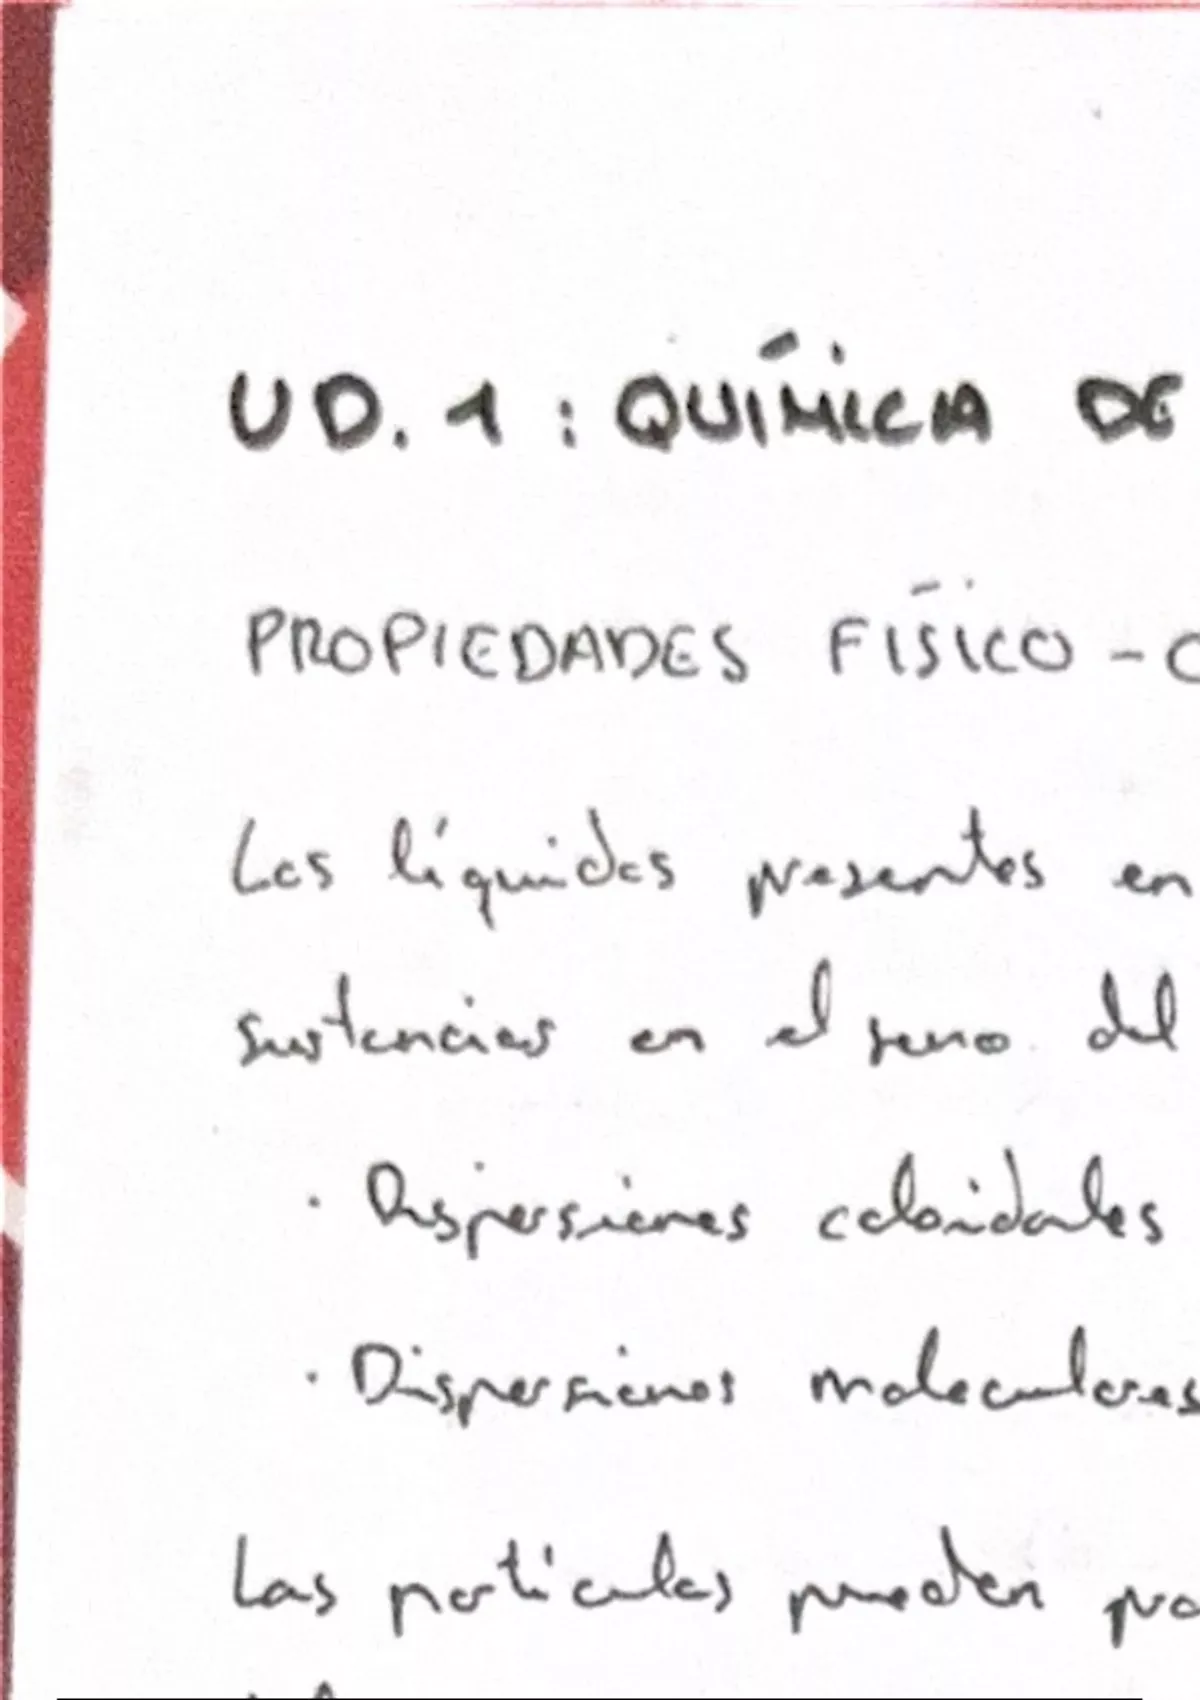 UD. 1: QUÍMICA DE
PROPIEDADES FÍSICO - C
Los líquidos presentes en
sustancias en el seno del
· Dispersiones coloidales
· Dispersiones moleculares
Las partículas pueden pro